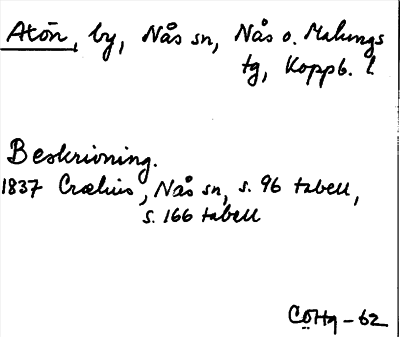 Atön, by, Nås sn, Nås o. Malungs
tg, Koppb. l.
Beskrivning.
1837 Crælius, Nås sn, s. 96 tabell,
s. 166 tabell
CÖHg-62